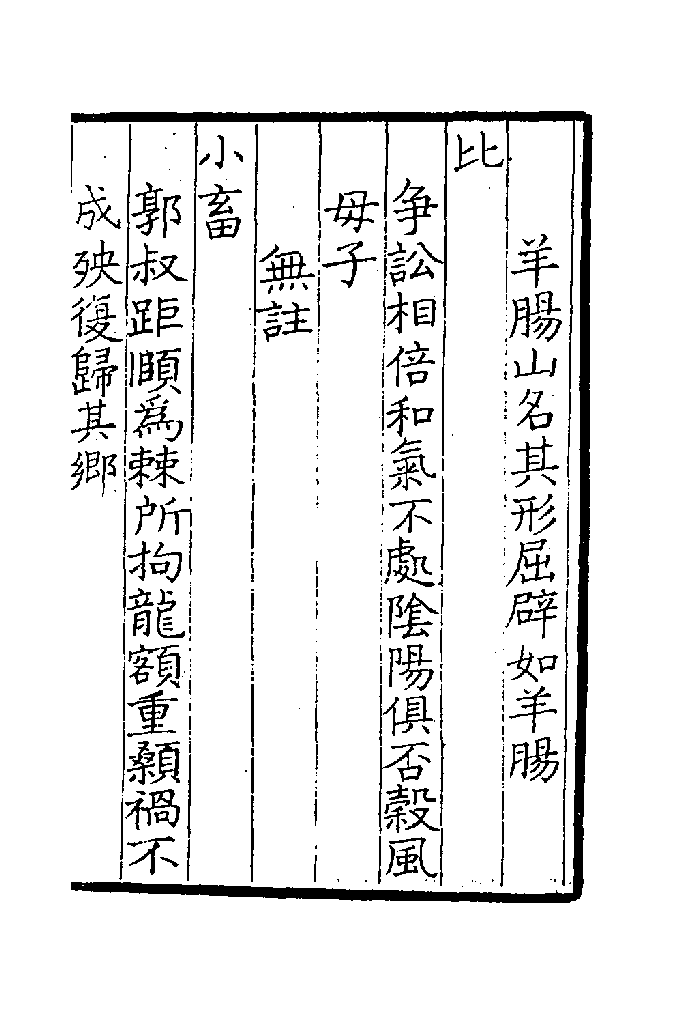 羊腸山名其形屈辟如羊腸
比
争訟相倍和氣不處隂陽俱否穀風
母子
無註
小畜
郭叔距頤為棘所拘龍額重顙禍不
成殃復歸其鄉